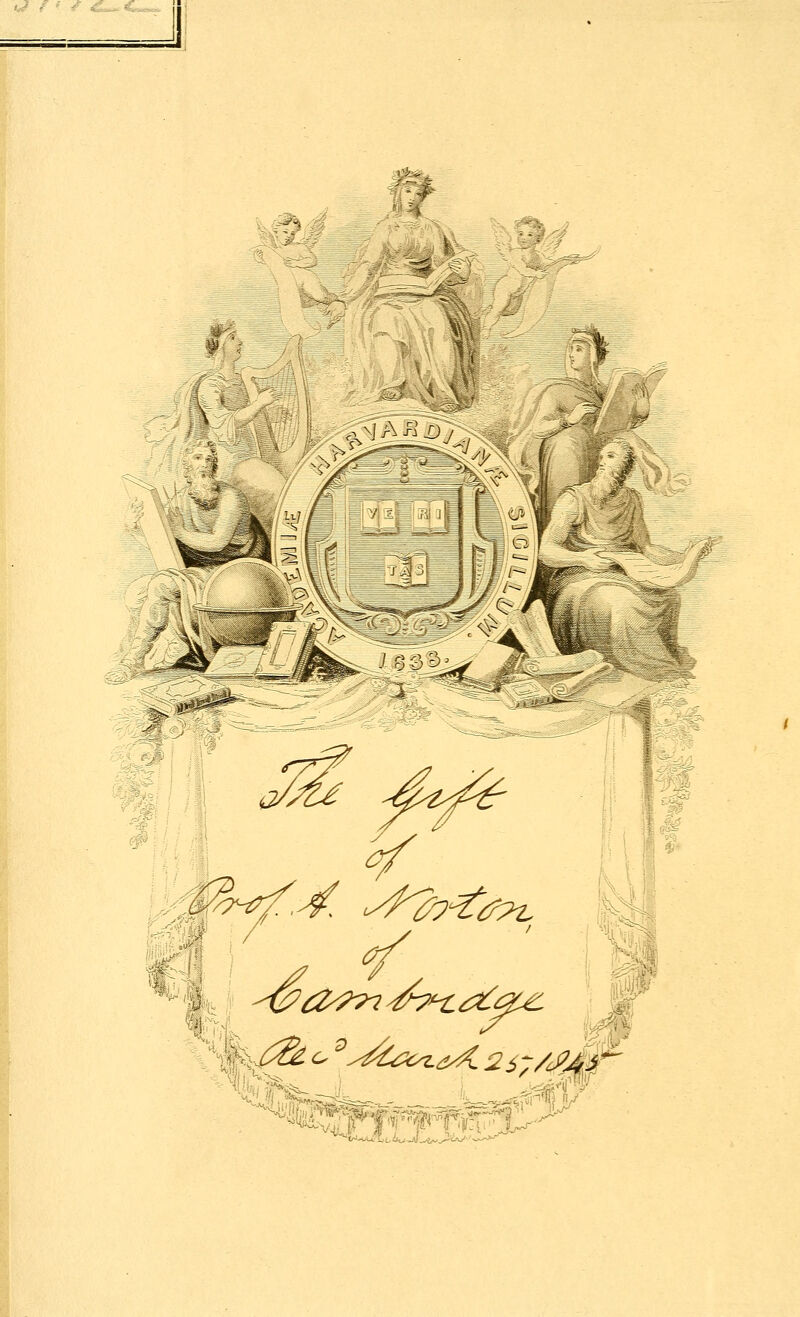 ACADEMIÆ HARVARDIANÆ SIGILLUM.
VE RI
TAS
1638.
The Gift
of
Prof. A. Norton,
of
Cambridge
Recd March 25, 1845